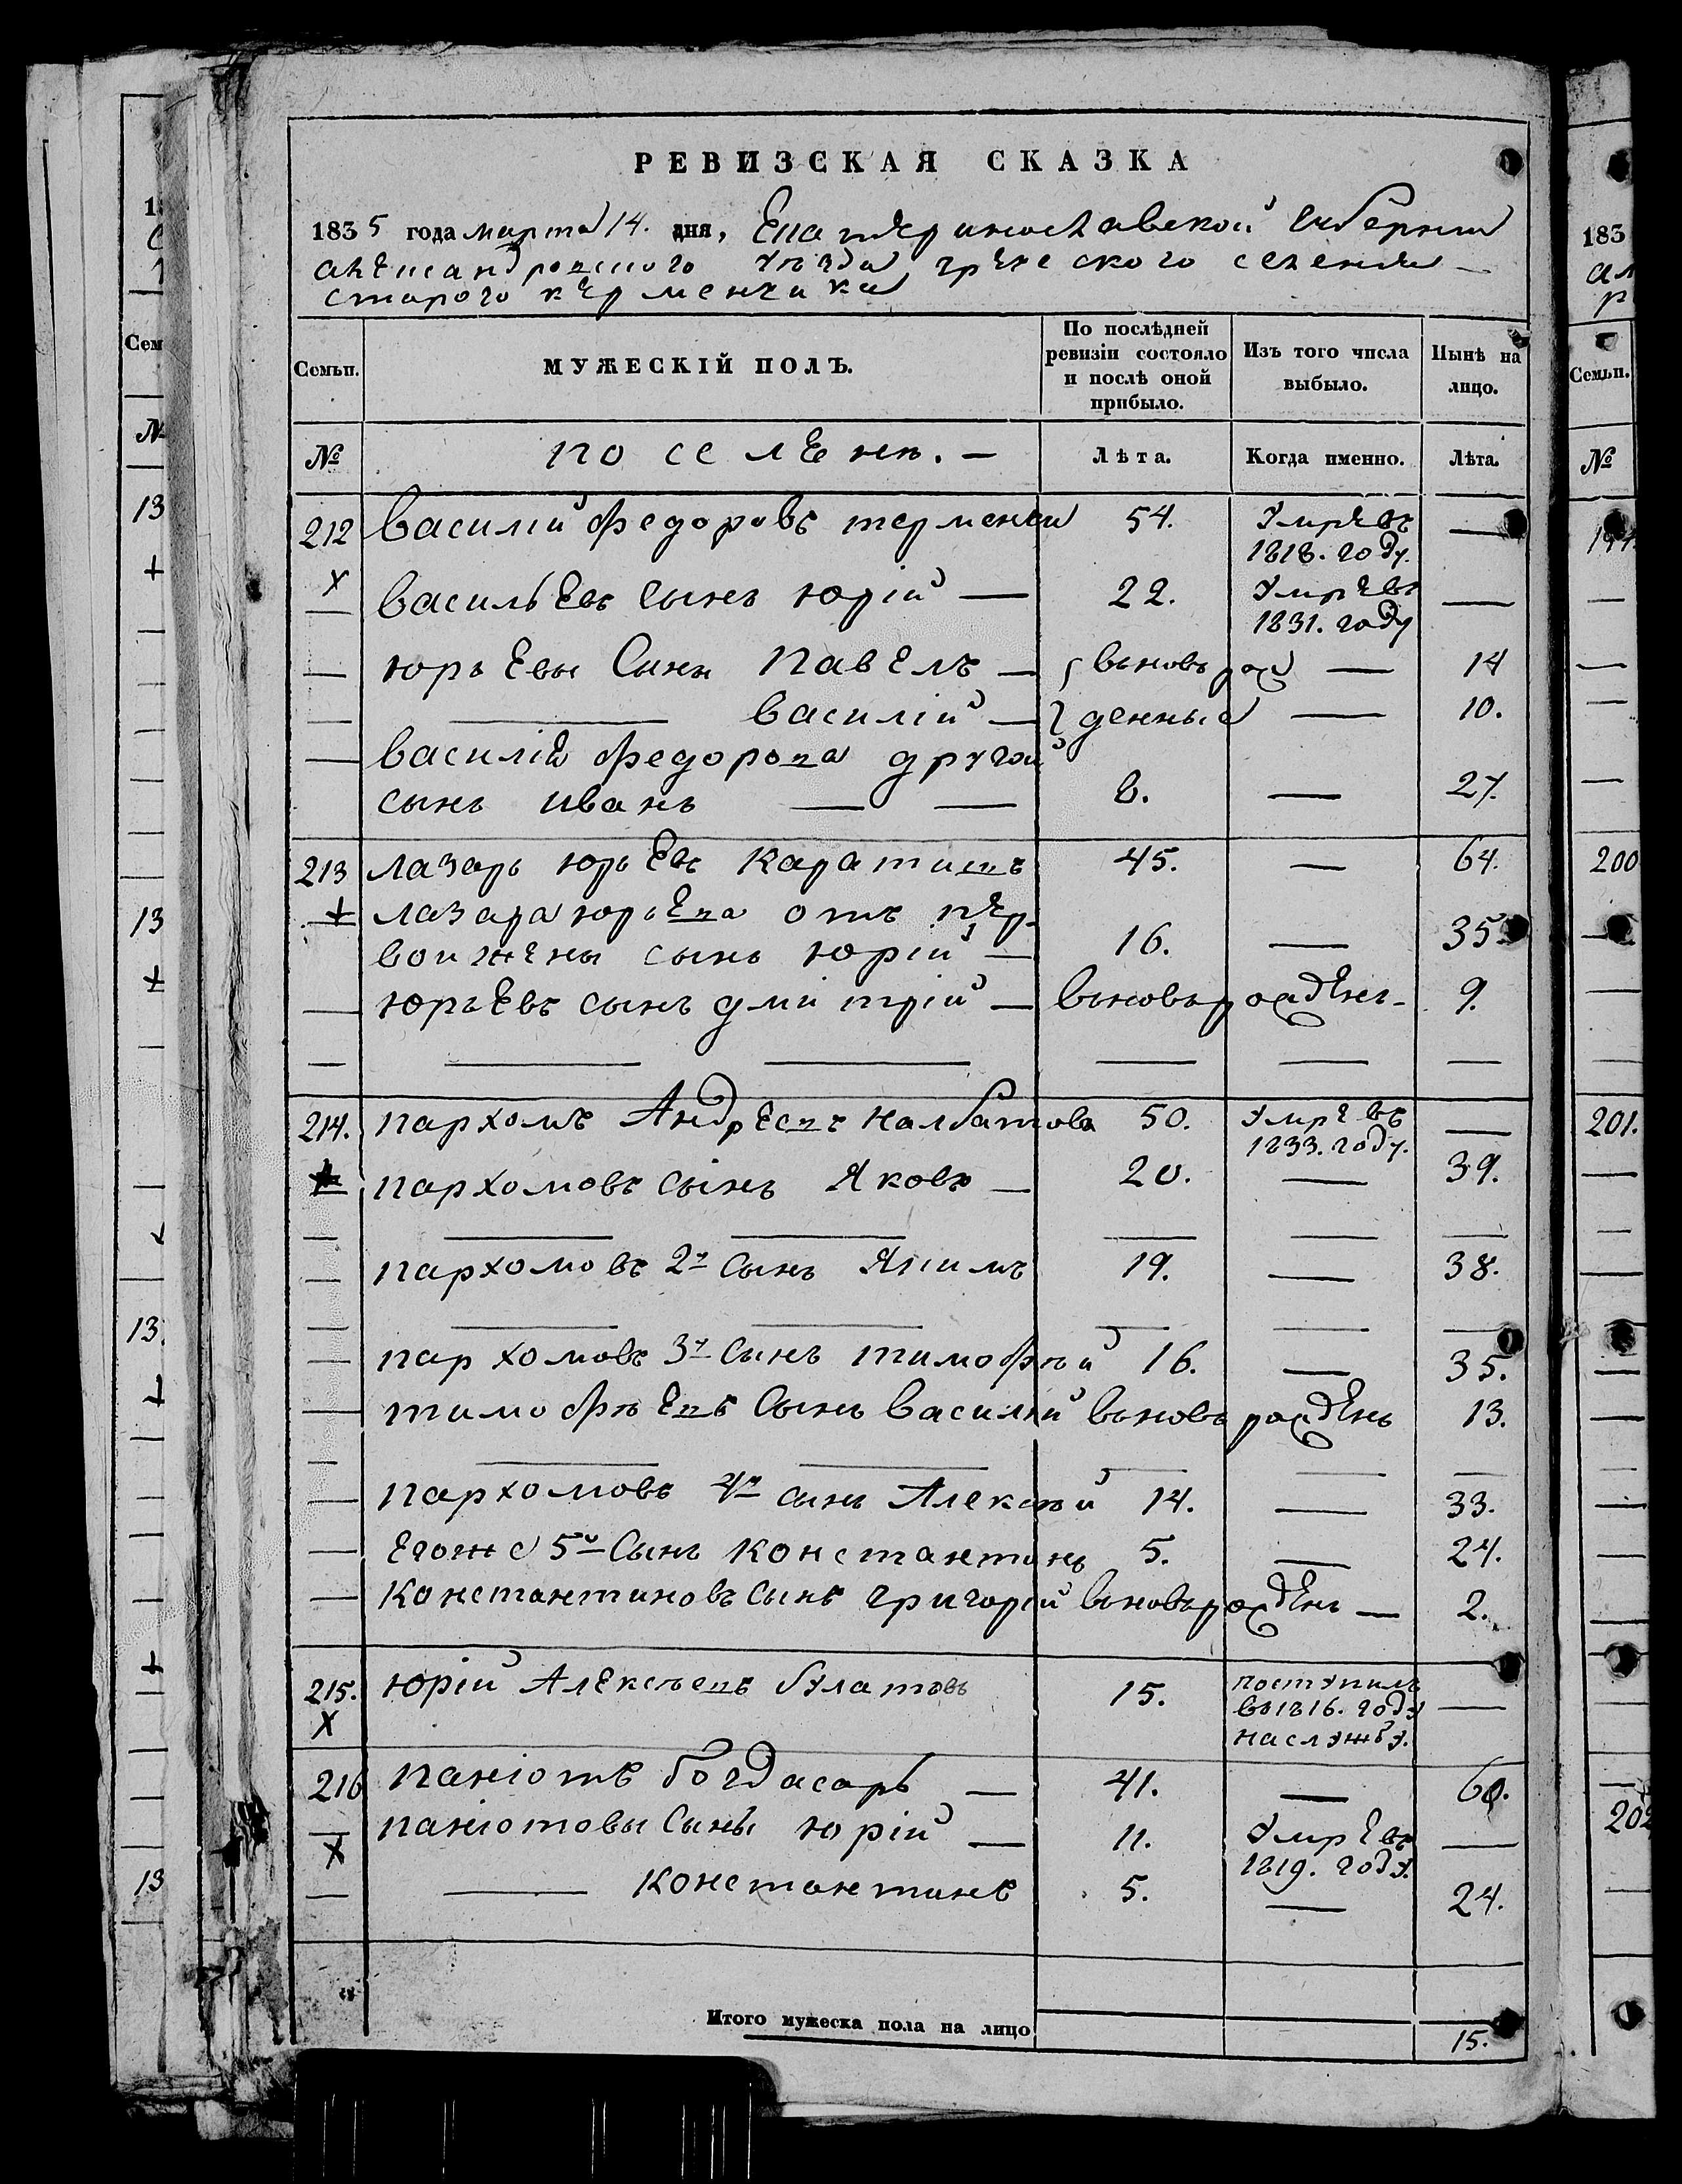 РЕВИЗСКАЯ СКАЗКА
1835 года марта 14. дня, Екатеринославской губернии
александровского уѣзда греческого селения
старого керменчика
Семьи.
МУЖЕСКІЙ ПОЛЪ.
По послѣдней ревизіи состояло и послѣ оной прибыло.
Изъ того числа выбыло.
Нынѣ на лицо.
№
поселяне. —
Лѣта.
Когда именно.
Лѣта.
212 василій федоровъ терменжи 54. умревъ 1818. году. —
васильевъ сынъ юрій — 22. умревъ 1831. году —
юрьевы сыны павелъ — вьновь рож — 14
василій — денные — 10.
василія федорова другой
сынъ иванъ — — 8. — 27.
213 лазарь юрьевъ каратишъ 45. — 64.
лазара юрьева отъ пер
вои жены сынъ юрій — 16. — 35.
юрьевъ сынъ дмитрій — вьновьрожденъ — 9.
214. пархомъ Андреевъ налбатовъ 50. умревъ 1833. году. —
пархомовъ сынъ Яковъ — 20. — 39.
пархомовъ 2й сынъ Якимъ 19. — 38.
пархомовъ 3й сынъ тимофѣй 16. — 35.
тимофѣевъ сынъ василий вьновь рожденъ 13.
пархомовъ 4й сынъ Алексѣй 14. — 33.
егоже 5й сынъ константинъ 5. — 24.
константиновъ сынъ григорій вьновьрожденъ — 2.
215. юрій Алексѣевъ булатовъ 15. поступилъ
во 1816. году —
наслужбу.
216 паніотъ богдасаръ — 41. — 60.
паніотовы сыны юрій — 11. умревъ 1819. году. —
константинъ 5. — 24.
Итого мужеска пола на лицо 15.
183
Семьи.
№
200
201.
202
13
13
13
13